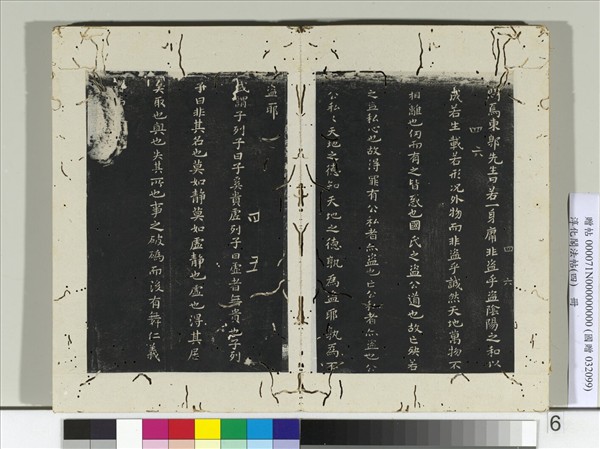 問焉東郭先生曰若一身庸非盜乎盜陰陽之和以
四六
四六
成若生載若形况外物而非盜乎誠然天地萬物不
相離也仞而有之皆惑也國氏之盜公道也故亡殃若
之盜私心也故得罪有公私者亦盜也亡公私者亦盜也公
公私々天地之德知天地之德孰為盜耶孰為不
盜耶
四五
或謂子列子曰子奚貴虛列子曰虛者無貴也子列
子曰非其名也莫如靜莫如虛靜也虛也得其居
矣取也與也失其所也事之破䃣而後有舞仁義
贈帖 000071N000000000 (國贈 032099)
淳化閣法帖(四) 冊
6